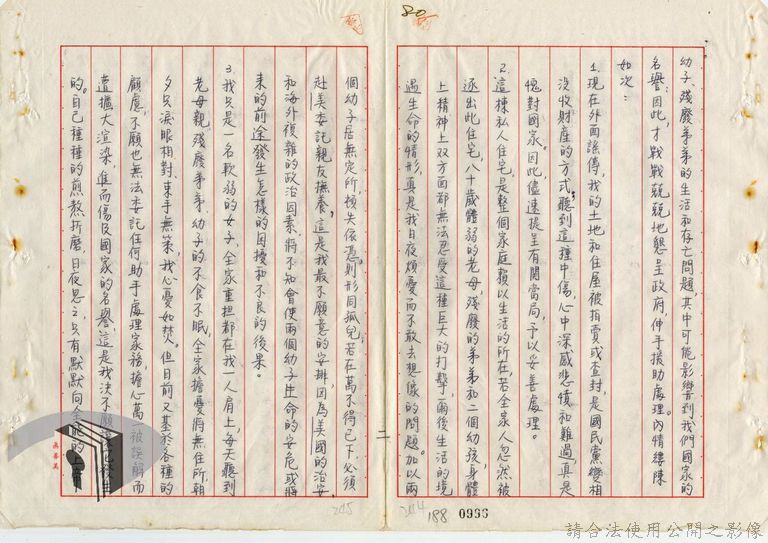 80
幼子、殘廢弟弟的生活和存亡問題,其中可能影響到我們國家的
名譽;因此,才戰戰兢兢地懇呈政府,伸手援助處理。內情縷陳
如次:
1.現在外面謠傳,我的土地和住屋被拍賣或查封,是國民黨變相
沒收財產的方式;聽到這種中傷,心中深感悲憤和難過,真是
愧對國家。因此儘速提呈有關當局,予以妥善處理。
2.這棟私人住宅,是整個家庭賴以生活的所在,若全家人忽然被
逐出此住宅,八十歲體弱的老母,殘廢的弟弟和二個幼孩,身體
上精神上双方面都無法忍受這種巨大的打擊,爾後生活的境
遇生命的情形,真是我日夜煩憂而不敢去想像的問題。加以兩
個幼子居無定所,頓失依憑,則形同孤兒,若在萬不得已下,必須
赴美委託親友撫養,這是我最不願意的安排,因為美國的治安
和海外復雜的政治因素,將不知會使兩個幼子生命的安危或將
來的前途發生怎樣的困擾和不良的後果。
3.我只是一名軟弱的女子,全家重担都在我一人肩上,每天聽到
老母親、殘廢弟弟、幼子的不食不眠,全家擔憂將無住所,朝
夕只淚眼相對,束手無策,我心憂如焚。但目前又基於各種的
顧慮,不願也無法委託任何助手處理家務,擔心萬一被誤解而
遭擴大渲染,進而傷及國家的名譽,這是我決不願
的。自己種種的煎熬折磨,日夜思之,只有默默向全能的上
二
245
244
188
0936
請合法使用公開之影像